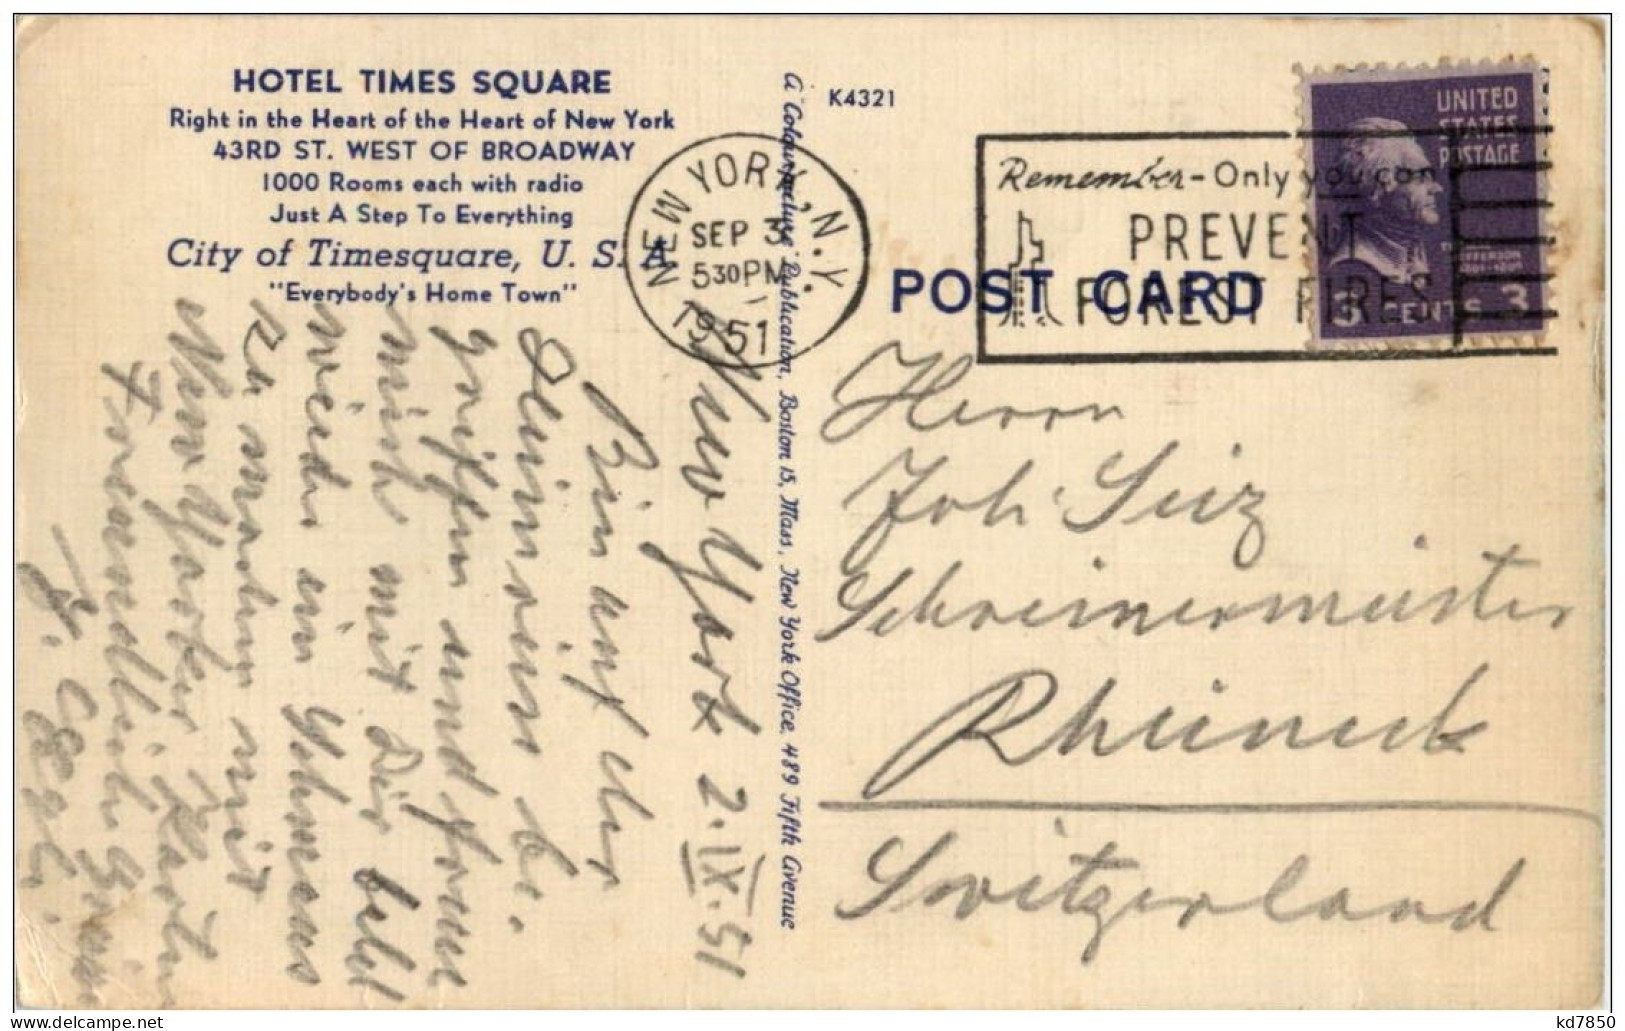 HOTEL TIMES SQUARE
Right in the Heart of the Heart of New York
43RD ST. WEST OF BROADWAY
1000 Rooms each with radio
Just A Step To Everything
City of Timesquare, U. S. A.
"Everybody's Home Town"
A "Colourpicture" Publication, Boston 15, Mass., New York Office, 489 Fifth Avenue
K4321
POST CARD
NEW YORK, N.Y.
SEP 3
530 PM
1951
Remember - Only you can
PREVENT
FOREST FIRES
UNITED
STATES
POSTAGE
3 CENTS 3
New York 2.IX.51
Bin auf der
und freue
mich mit Dir bald
wieder ein
zu machen mit
New Yorker
Freundlich
J. Egli
Herrn
Joh. Seiz
Schreinermeister
Rheineck
Switzerland
delcampe.net
kd7850